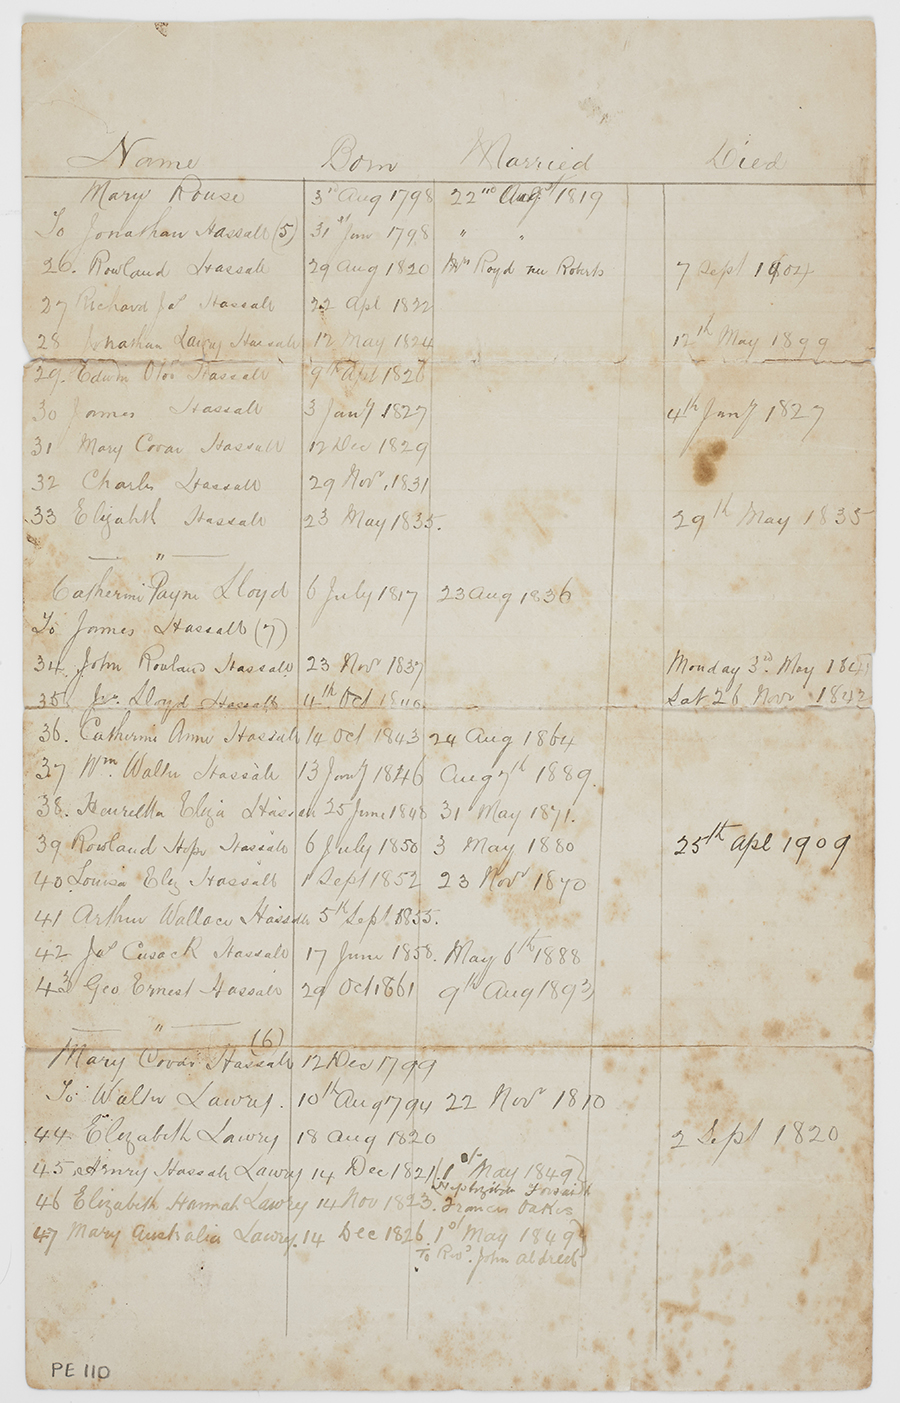 Name Born Married Died
Mary Rouse 3rd Aug 1798 22nd Augst 1819
To Jonathan Hassall (5) 31st Jan 1798 " "
26. Rowland Hassall 29 Aug 1820 Mrs Royd nee Roberts 7 Sept 1904
27 Richard Jas Hassall 22 Apl 1822
28 Jonathan Lawry Hassall 12 May 1824 12th May 1899
29. Edwin Hassall 9th Apl 1826
30 James Hassall 3 Jany 1827 4th Jany 1827
31 Mary Cover Hassall 12 Dec 1829
32 Charles Hassall 29 Novr. 1831
33 Elizabth Hassall 23 May 1835. 29th May 1835
— " —
Catherine Payne Lloyd 6 July 1817 23 Aug 1836
To James Hassall (7)
34 John Rowland Hassall 23 Novr 1837 Monday 3rd. May
35 Lloyd Hassall 4th Oct Sat 26 Novr 1842
36. Catherine Anne Hassall 14 Oct 1843 24 Aug 1864
37 Wm. Walter Hassall 13 Jany 1846 Augt 7th 1889.
38. Henrietta Eliza Hassall 25 June 1848 31 May 1871.
39 Rowland Hope Hassall 6 July 1850 3 May 1880 25th Apl 1909
40 Louisa Eliz Hassall 1 Sept 1852 23 Novr 1870
41 Arthur Wallace Hassall 5th Sept. 1855.
42 Jas Cusack Hassall 17 June 1858. May 6th 1888
43 Geo Ernest Hassall 29 Oct 1861 9th Aug 1893
— " —
(6)
Mary Cover Hassall 12 Dec 1799
To Walter Lawry. 10th Aug 1794 22 Novr 1810
44. Elizabeth Lawry 18 Aug 1820 2 Sept 1820
45 Henry Hassall Lawry 14 Dec 1821 (1st May 1849)
Forsaith
46 Elizabeth Hannah Lawry 14 Nov 1823. Francis Oakes
47 Mary Australia Lawry. 14 Dec 1826. 1st May 1849)
To Revd. John Aldred
PE 110